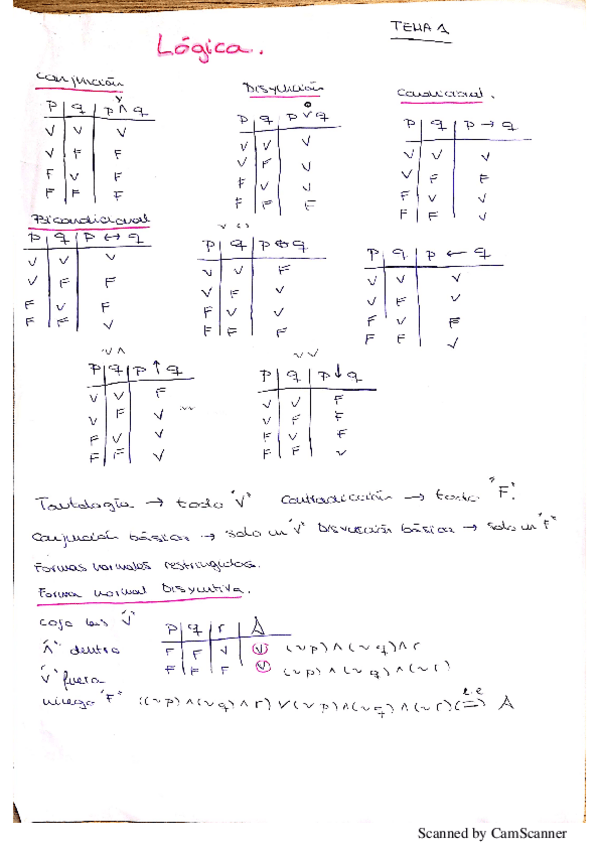 TEMA 1
Lógica.
Conjunción
y
p q p ∧ q
V V V
V F F
F V F
F F F
Disyunción
o
p q p ∨ q
V V V
V F V
F V V
F F F
Condicional.
p q p → q
V V V
V F F
F V V
F F V
Bicondicional
p q p ↔ q
V V V
V F F
F V F
F F V
p q p q
V V F
V F V
F V V
F F F
p q p ← q
V V V
V F V
F V F
F F V
~ ∧
p q p ↑ q
V V F
V F V
F V V
F F V
p q p ↓ q
V V F
V F F
F V F
F F V
Tautología → todo "V" Contradicción → todo "F".
Conjunción básica → solo un "V" Disyunción básica → solo un "F"
Formas normales restringidas.
Forma normal Disyuntiva.
cojo las "V"
"∧" dentro
"∨" fuera
niego "F"
p q r A
F F V V (~p) ∧ (~q) ∧ r
F F F V (~p) ∧ (~q) ∧ (~r)
((~p) ∧ (~q) ∧ r) ∨ (~p) ∧ (~q) ∧ (~r) A
Scanned by CamScanner